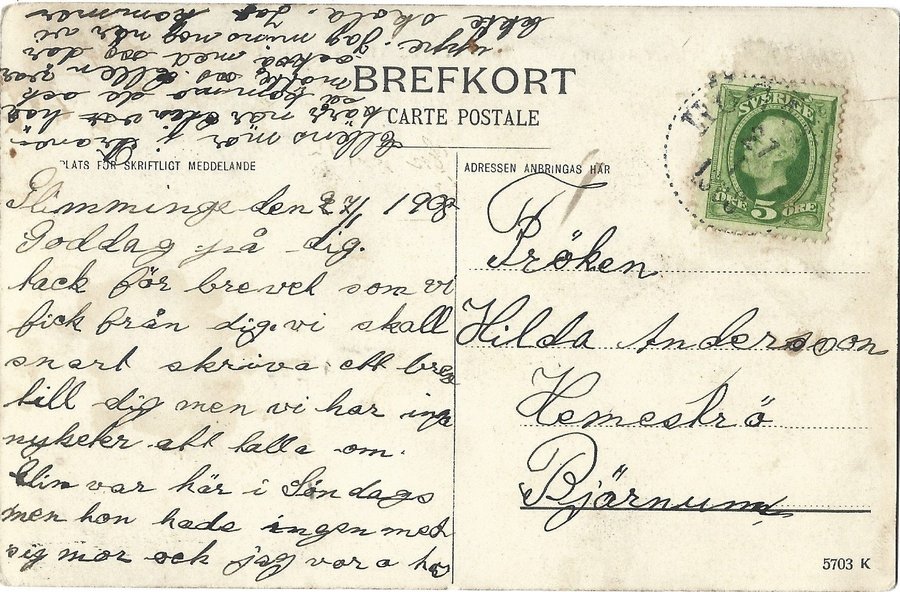 BREFKORT
CARTE POSTALE
PLATS FÖR SKRIFTLIGT MEDDELANDE
ADRESSEN ANBRINGAS HÄR
SVERIGE
ÖRE 5 ÖRE
Glimminge den 22/1 1908
Goddag på dig.
tack för brevet som vi
fick från dig. vi skall
snart skriva ett brev
till dig men vi har inga
nyheter att talla om.
Elin var här i Söndags
men hon hade ingen med
sig mor ock jag var a hos
Ellens mor i
da ock
Ellen var
också med oss där
uppe. Jag
skola. Jag kommer
Fröken
Hilda Andersson
Hemeströ
Bjärnum
5703 K